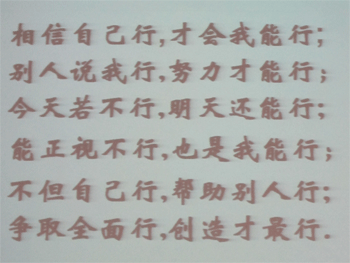 相信自己行,才会我能行;
别人说我行,努力才能行;
今天若不行,明天还能行;
能正视不行,也是我能行;
不但自己行,帮助别人行;
争取全面行,创造才最行.